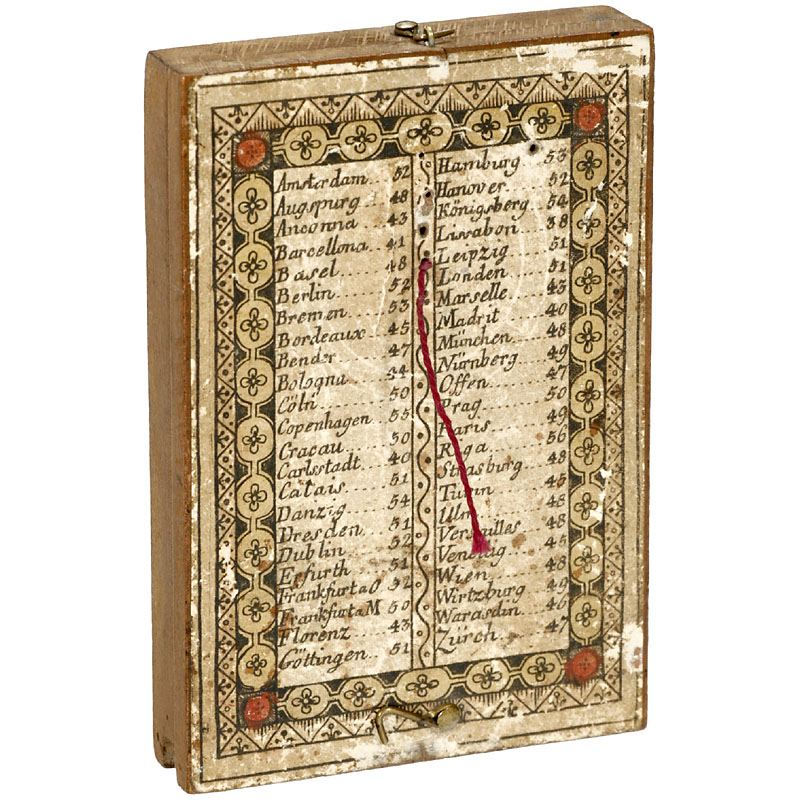 Amsterdam.. 52
Augspurg.. 48
Anconna... 43
Barcellona.. 41
Basel..... 48
Berlin..... 52
Bremen.... 53
Bordeaux... 45
Bender..... 47
Bologna.... 44
Cöln...... 50
Copenhagen.. 55
Cracau..... 50
Carlsstadt... 40
Calais..... 51
Danzig..... 54
Dresden.... 51
Dublin..... 52
Erfurth.... 51
Frankfurt a O 52
Frankfurt a M 50
Florenz.... 43
Göttingen... 51
Hamburg.. 53
Hanover... 52
Königsberg.. 54
Lissabon.. 38
Leipzig.... 51
Londen.... 51
Marselle... 43
Madrit.... 40
München... 48
Nürnberg... 49
Offen..... 47
Prag...... 50
Paris...... 49
Riga...... 56
Strasburg... 48
Turin..... 45
Ulm...... 48
Versailles... 48
Venedig.... 45
Wien..... 48
Wirtzburg.. 49
Warasdin.. 46
Zürch.... 47